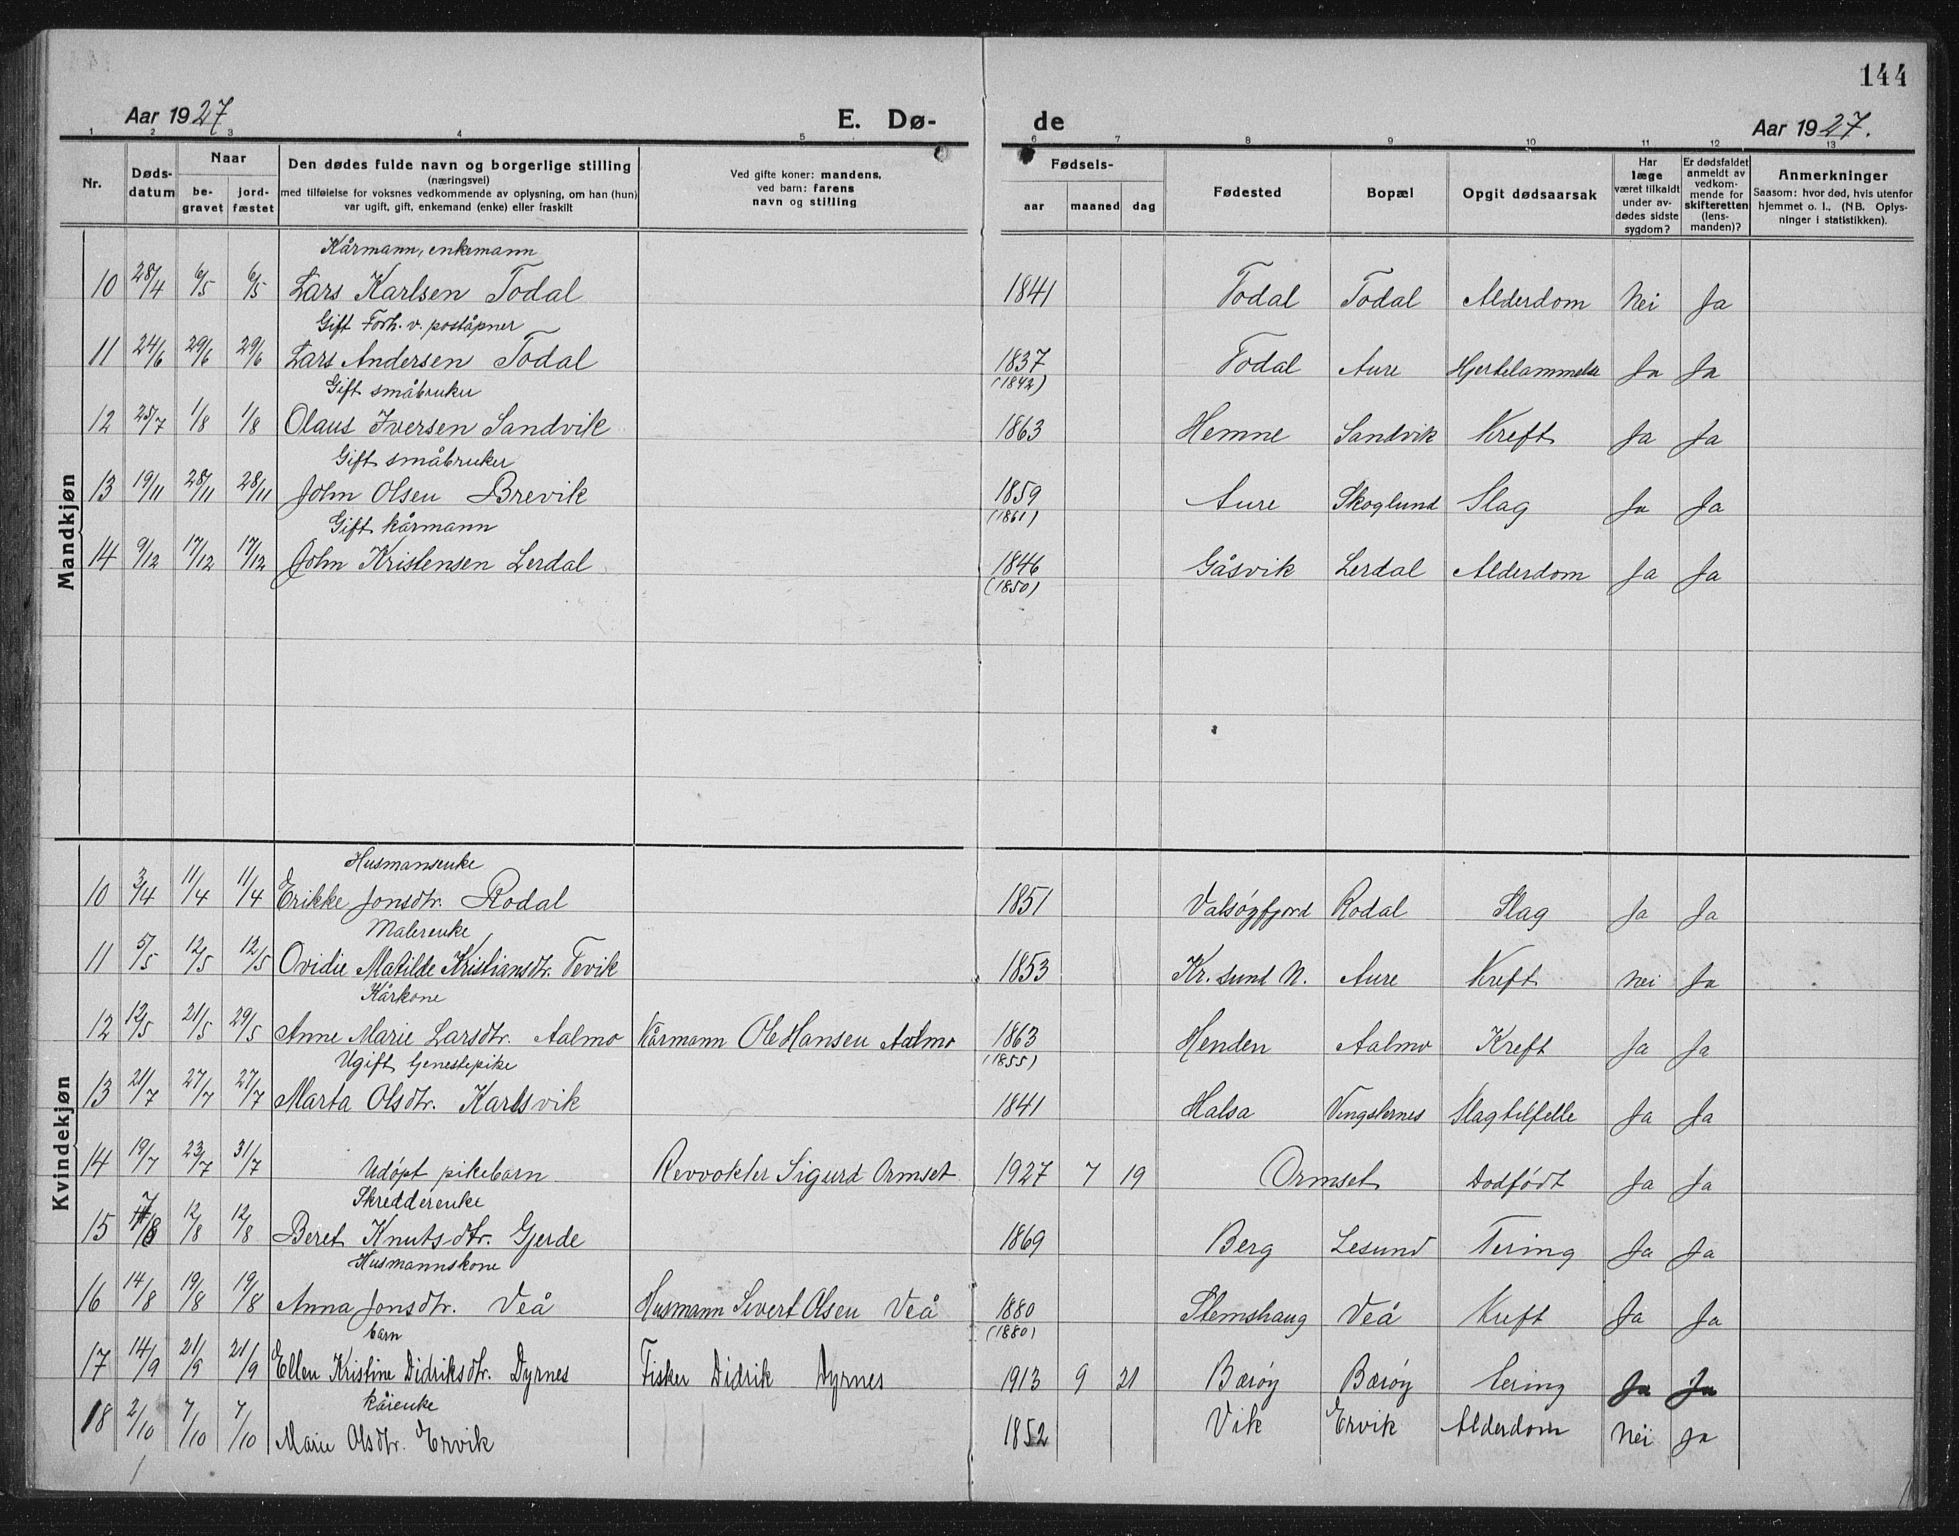 144
Aar 1927 E. Dø- de Aar 1927.
1 2 3 4 5 6 7 8 9 10 11 12 13
Nr. Døds-datum Naar be-gravet jord-fæstet Den dødes fulde navn og borgerlige stilling (næringsvei) med tilføielse for voksnes vedkommende av oplysning, om han (hun) var ugift, gift, enkemand (enke) eller fraskilt Ved gifte koner: mandens, ved barn: farens navn og stilling Fødsels- aar maaned dag Fødested Bopæl Opgit dødsaarsak Har læge været tilkaldt under av-dødes sidste sygdom? Er dødsfaldet anmeldt av vedkom-mende for skifteretten (lens-manden)? Anmerkninger Saasom: hvor død, hvis utenfor hjemmet o. l., (NB. Oplys-ninger i statistikken).
Mandkjøn
Kårmann, enkemann
10 28/4 6/5 6/5 Lars Karlsen Todal 1841 Todal Todal Alderdom Nei Ja
Gift Forh. v. poståpner
11 24/6 29/6 29/6 Lars Andersen Todal 1837 Todal Aure Hjertelammelse Ja Ja
(1842)
Gift småbruker
12 25/7 1/8 1/8 Olaus Iversen Sandvik 1863 Hemne Sandvik Kreft Ja Ja
Gift småbruker
13 19/11 28/11 28/11 John Olsen Brevik 1859 Aure Skoglund Slag Ja Ja
(1861)
Gift kårmann
14 9/12 17/12 17/12 John Kristensen Lerdal 1846 Gåsvik Lerdal Alderdom Ja Ja
(1850)
Kvindekjøn
Husmansenke
10 3/4 11/4 11/4 Erikke Jonsdtr. Rodal 1851 Valsøyfjord Rodal Slag Ja Ja
Malerenke
11 5/5 12/5 12/5 Ovidie Matilde Kristiansdtr. Tevik 1853 Kr. sund N. Aure Kreft Nei Ja
Kårkone
12 12/5 21/5 29/5 Anne Marie Larsdtr. Aalmo Kårmann Ole Hansen Aalmo 1863 Henden Aalmo Kreft Ja Ja
(1855)
Ugift tjenestepike
13 21/7 27/7 27/7 Marta Olsdtr. Karlsvik 1841 Halsa Vingsternes Slagtilfelle Ja Ja
14 19/7 23/7 31/7 Udøpt pikebarn Revvokter Sigurd Ormset 1927 7 19 Ormset Dødfødt Ja Ja
Skredderenke
15 7/8 12/8 12/8 Beret Knutsdtr. Gjerde 1869 Berg Lesund Tering Ja Ja
Husmannskone
16 14/8 19/8 19/8 Anna Jonsdtr. Veå Husmann Sivert Olsen Veå 1880 Stemshaug Veå Kreft Ja Ja
(1880)
barn
17 14/9 21/9 21/9 Ellen Kristine Didriksdtr. Dyrnes Fisker Didrik Dyrnes 1913 9 21 Bærøy Bærøy tering Ja Ja
kårenke
18 2/10 7/10 7/10 Marie Olsdtr. Ervik 1852 Vik Ervik Alderdom Nei Ja